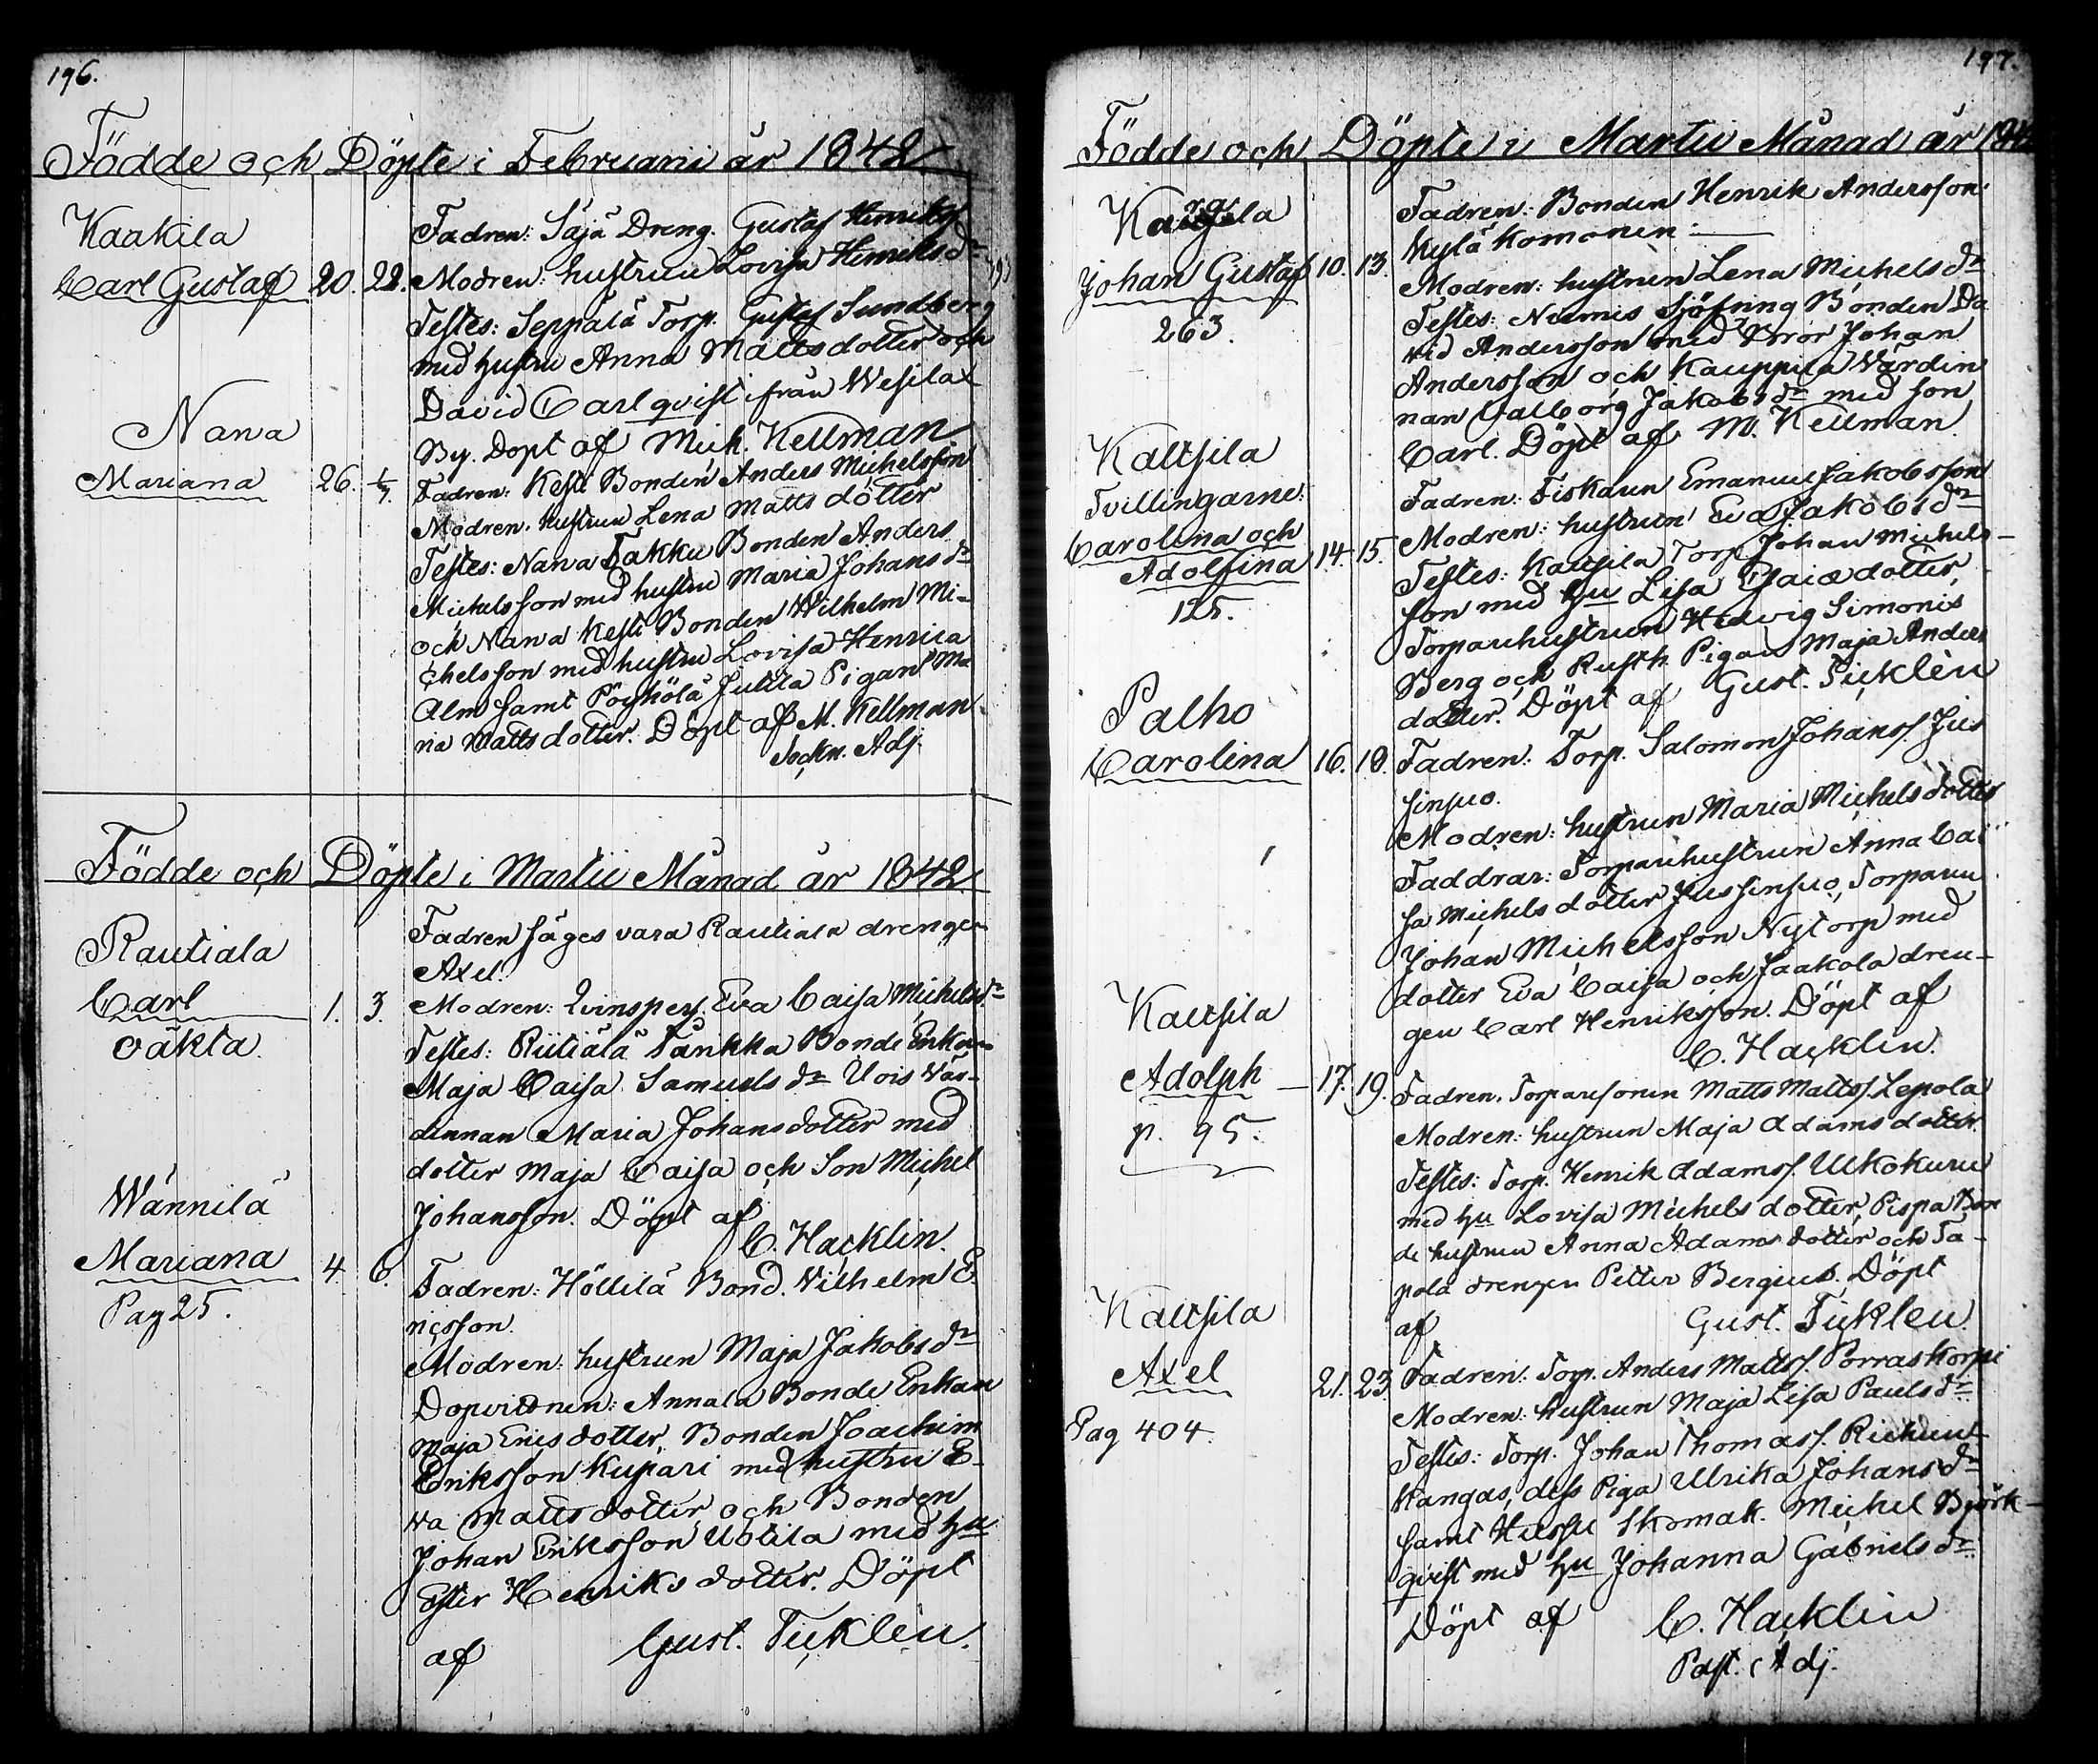 196.
Födde och Döpte i Februarii år 1842.
Kaakila
Carl Gustaf 20. 22.
Fadren: Saja Dreng. Gustaf Henriksf
Modren: hustrun Lovisa Henriksdr
Testes: Seppälä Torp. Gustaf Sundberg
med hustru Anna Mattsdotter och
David Carlqvist ifrån Wesilax
By. Döpt af Mich. Kellman
Nana
Mariana 26. 1/3.
Fadren: Kesti Bonden Anders Michelsson
Modren: hustrun Lena Matts dotter
Testes: Nana Takku Bonden Anders
Michelsson med hustru Maria Johansdr
och Nana Kesti Bonden Wilhelm Mi-
chelsson med hustru Lovisa Henrica
Alm samt Pöyhölä Jutila Pigan Ma
ria Mattsdotter. Döpt af M. Kellman.
Sockn. Adj.
Födde och Döpte i Martii Månad år 1842.
Rautiala
Carl 1. 3.
oäkta.
Fadren säges vara Rautiala drengen
Axel.
Modren: Qvinspers. Eva Caisa Michelsdr
Testes: Riitiälä Tanikka Bonde Enkan
Maja Caisa Samuelsdr Uois Vär-
dinnan Maria Johansdotter med
dotter Maja Caisa och Son Michel
Johansson. Döpt af
C. Hacklin.
Wännilä
Mariana 4. 6.
Pag 25.
Fadren: Höllilä Bond. Wilhelm E
ricsson.
Modren: hustrun Maja Jakobsdr
Dopvittnen: Annala Bonde Enkan
Maja Ericsdotter, Bonden Joachim
Eriksson Kupari med hustru E-
va Mattsdotter och Bonden
Johan Eriksson Uotila med hu
Ester Henriksdotter. Döpt
af Gust. Ticklén.
197.
Födde och Döpte i Martii Månad år 1842
Johan Gustaf 10. 13.
263.
Fadren: Bonden Henrik Andersson
Kylä Komonen:
Modren: hustrun Lena Michelsdr
Testes: Niemis Sjöfring Bonden Da
vid Andersson med Bror Johan
Andersson och Kauppila Värdin
nan Valborg Jakobsdr med son
Carl. Döpt af M. Kellman.
Kaltsila
Tvillingarne:
Carolina och
Adolfina 14. 15.
125.
Fadren: Fiskaren Emanuel Jakobsson
Modren: hustrun Eva Jakobsdr
Testes: Kaltsila Torp. Johan Michels-
son med hu Lisa Esaiædotter,
Torparehustrun Hedvig Simonis
Berg och Rusth. Pigan Maja Anders
dotter. Döpt af Gust. Ticklén
Palho
Carolina 16. 18.
Fadren: Torp. Salomon Johansf. Jus
sinsuo.
Modren: hustrun Maria Michelsdotter
Faddrar: Torparehustrun Anna Cai
sa Michelsdotter Jussinsuo, Torparen
Johan Michelsson Nytorp med
dotter Eva Caisa och Jaakola dren-
gen Carl Henriksson. Döpt af
C. Hacklin.
Kaltsila
Adolph 17. 19.
p. 95.
Fadren: Torparesonen Matts Mattsf. Lepola
Modren: hustrun Maja Adamsdotter.
Testes: Torp. Henrik Adamsf. Ukokuru
med hu Lovisa Michelsdotter, Pispa Bon
de hustrun Anna Adamsdotter och Ta-
pola drengen Petter Bergius. Döpt
af Gust. Ticklén
Kaltsila
Axel 21. 23.
Pag 404.
Fadren: Torp. Anders Mattsf. Porraskorpi
Modren: hustrun Maja Lisa Paulsdr
Testes: Torp. Johan Thomasf.
Kangas, dess Piga Ulrika Johansdr
samt Hussu Skomak. Michel Björk-
qvist med hu Johanna Gabrielsdr
Döpt af C. Hacklin
Past. Adj.